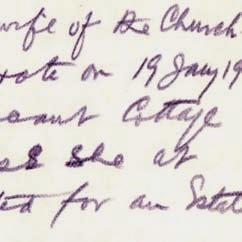 wife of the Church
wrote on 19 Jany 19
Cottage
she at
for an Estat